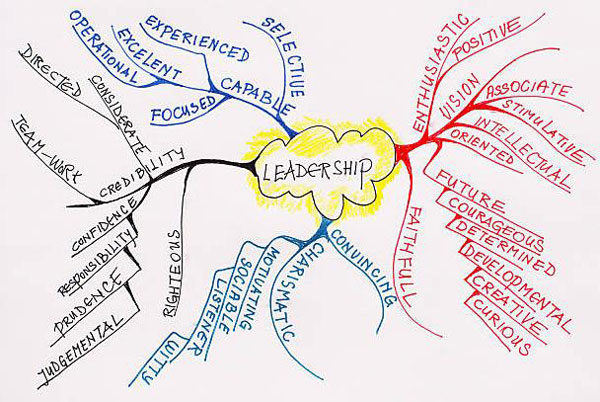 OPERATIONAL
EXCELENT
EXPERIENCED
FOCUSED
CAPABLE
SELECTIVE
ENTHUSIASTIC
POSITIVE
VISION
ASSOCIATE
STIMULATIVE
INTELLECTUAL
ORIENTED
FUTURE
COURAGEOUS
DETERMINED
DEVELOPMENTAL
CREATIVE
CURIOUS
FAITHFULL
LEADERSHIP
DIRECTED
CONSIDERATE
TEAM-WORK
CREDIBILITY
CONFIDENCE
RESPONSIBILITY
PRUDENCE
JUDGEMENTAL
RIGHTEOUS
CONVINCING
CHARISMATIC
MOTIVATING
SOCIABLE
LISTENER
WITTY